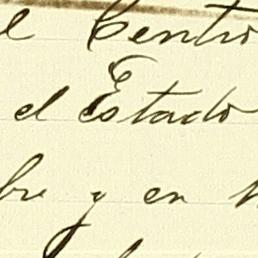 el Centro
el Estado
bre y en